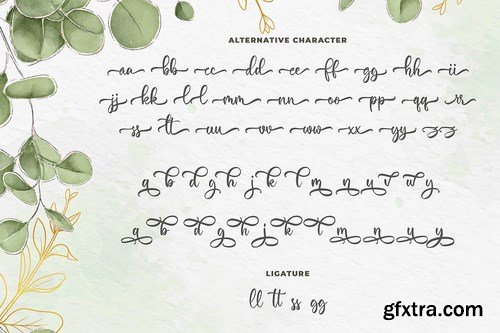 ALTERNATIVE CHARACTER
aa bb cc dd ee ff gg hh ii
jj kk ll mm nn oo pp qq rr
ss tt uu vv ww xx yy zz
q b d g h j k l m n u w y
a b d g h j k l m n u y
LIGATURE
ll tt ss gg
gfxtra.com